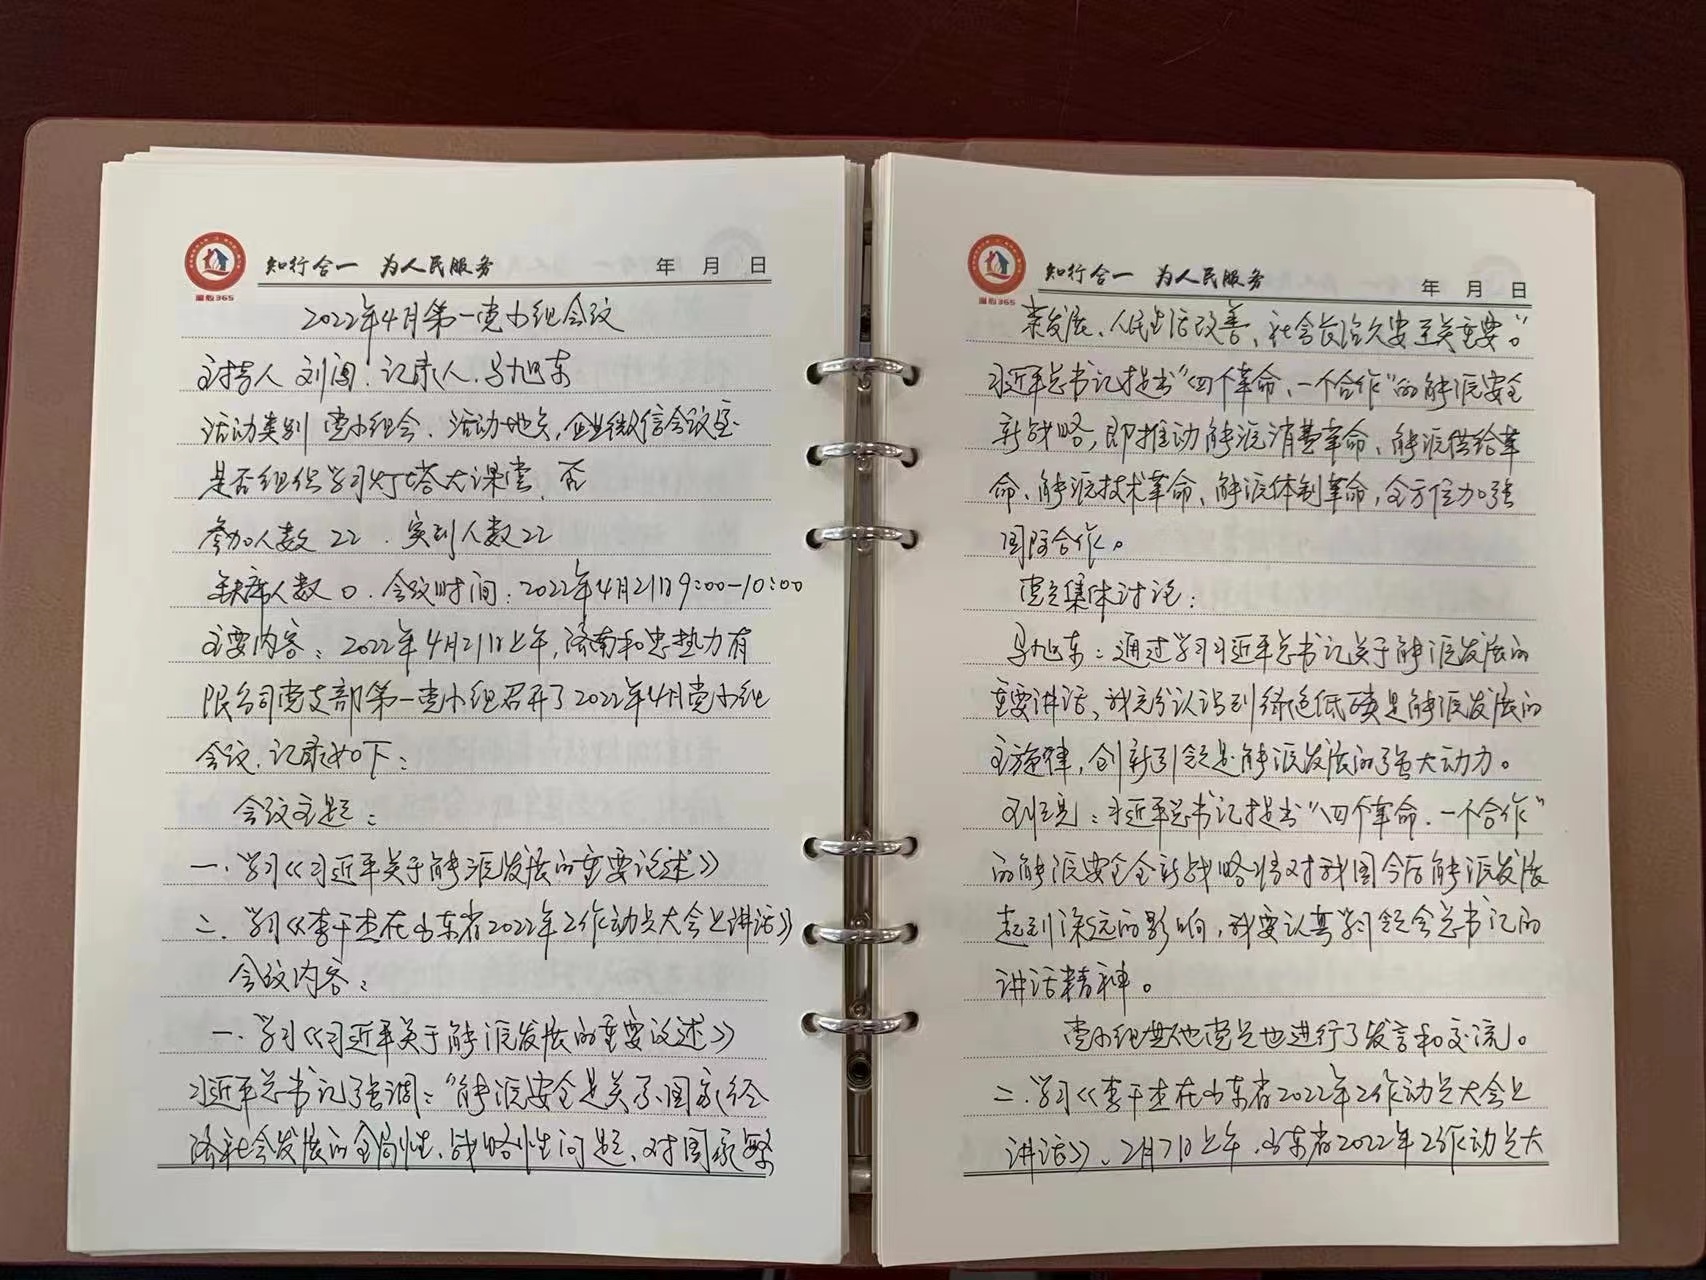 知行合一 为人民服务 年 月 日
温暖365
2022年4月第一党小组会议
主持人 刘阔. 记录人. 马旭东
活动类别 党小组会. 活动地点, 企业微信会议室
是否组织学习灯塔大课堂. 否
参加人数 22 . 实到人数22
缺席人数 0. 会议时间: 2022年4月21日9:00-10:00
主要内容: 2022年4月21日上午,济南和忠热力有
限公司党支部第一党小组召开了2022年4月党小组
会议.记录如下:
会议主题:
一.学习《习近平关于能源发展的重要论述》
二.学习《李干杰在山东省2022年工作动员大会上讲话》
会议内容:
一.学习《习近平关于能源发展的重要论述》
习近平总书记强调:“能源安全是关系国家经
济社会发展的全局性、战略性问题、对国家繁
知行合一 为人民服务 年 月 日
温暖365
荣发展、人民生活改善、社会长治久安至关重要。”
习近平总书记提出“四个革命、一个合作”的能源安全
新战略,即推动能源消费革命、能源供给革
命、能源技术革命、能源体制革命,全方位加强
国际合作。
党员集体讨论:
马旭东:通过学习习近平总书记关于能源发展的
重要讲话、我充分认识到绿色低碳是能源发展的
主旋律,创新引领是能源发展的强大动力。
:习近平总书记提出“四个革命.一个合作”
的能源安全全新战略将对我国今后能源发展
起到深远的影响,我要认真学习领会总书记的
讲话精神。
党小组其他党员也进行了发言和交流。
二.学习《李干杰在山东省2022年工作动员大会上
讲话》、2月7日上午.山东省2022年工作动员大